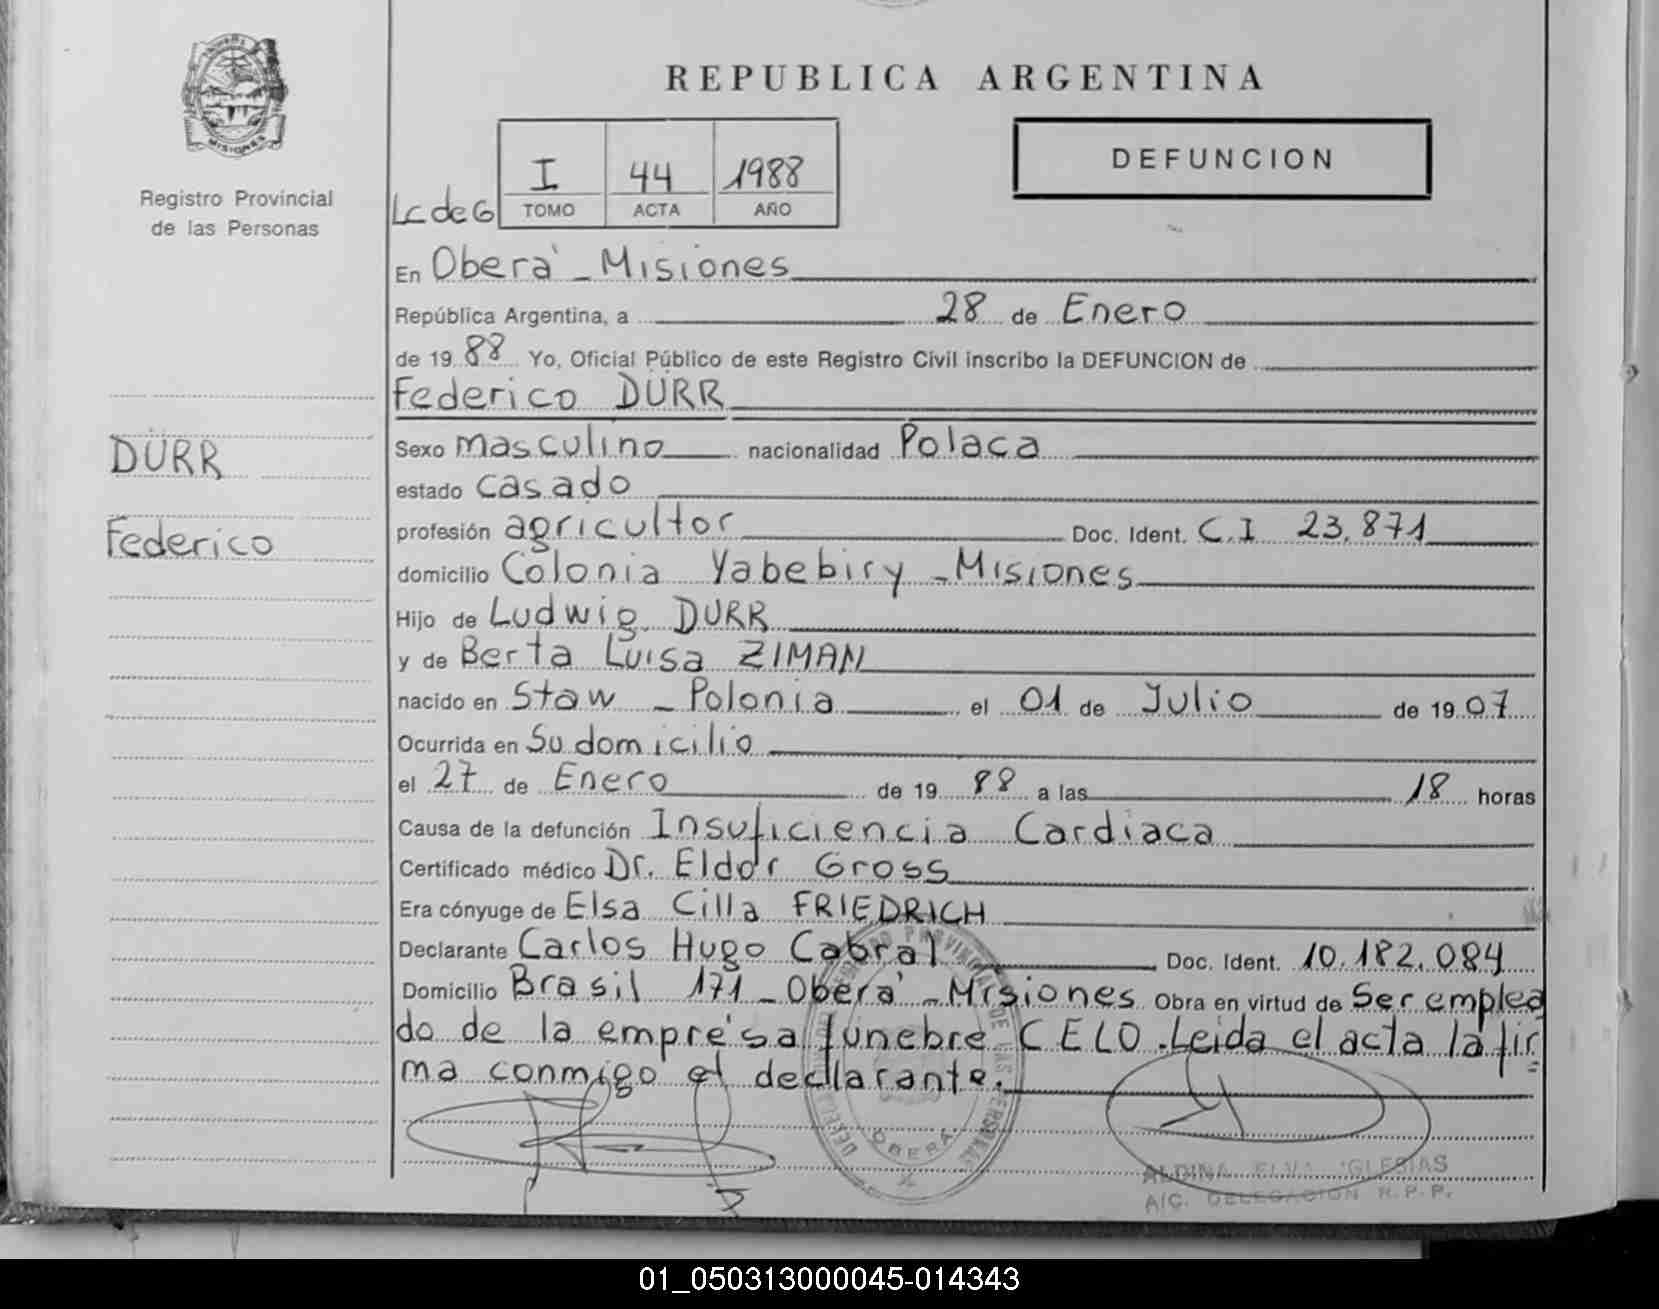 MISIONES
Registro Provincial
de las Personas
REPUBLICA ARGENTINA
DEFUNCION
I 44 1988
Lc de G TOMO ACTA AÑO
En Oberá - Misiones
República Argentina, a 28 de Enero
de 1988 Yo, Oficial Público de este Registro Civil inscribo la DEFUNCION de
Federico DÜRR
DÜRR
Federico
Sexo masculino nacionalidad Polaca
estado casado
profesión agricultor Doc. Ident. C.I 23.871
domicilio Colonia Yabebiry - Misiones
Hijo de Ludwig DURR
y de Berta Luisa ZIMAN
nacido en Staw - Polonia el 01 de Julio de 1907
Ocurrida en Su domicilio
el 27 de Enero de 1988 a las 18 horas
Causa de la defunción Insuficiencia Cardiaca
Certificado médico Dr. Eldor Gross
Era cónyuge de Elsa Cilla FRIEDRICH
Declarante Carlos Hugo Cabral Doc. Ident. 10.182.084
Domicilio Brasil 171 - Oberá - Misiones Obra en virtud de Ser emplea
do de la empresa fúnebre CELO. Leida el acta la fir=
ma conmigo el declarante.
OBERA
ALDINA ELVA IGLESIAS
A/C. DELEGACION R.P.P.
01_050313000045-014343